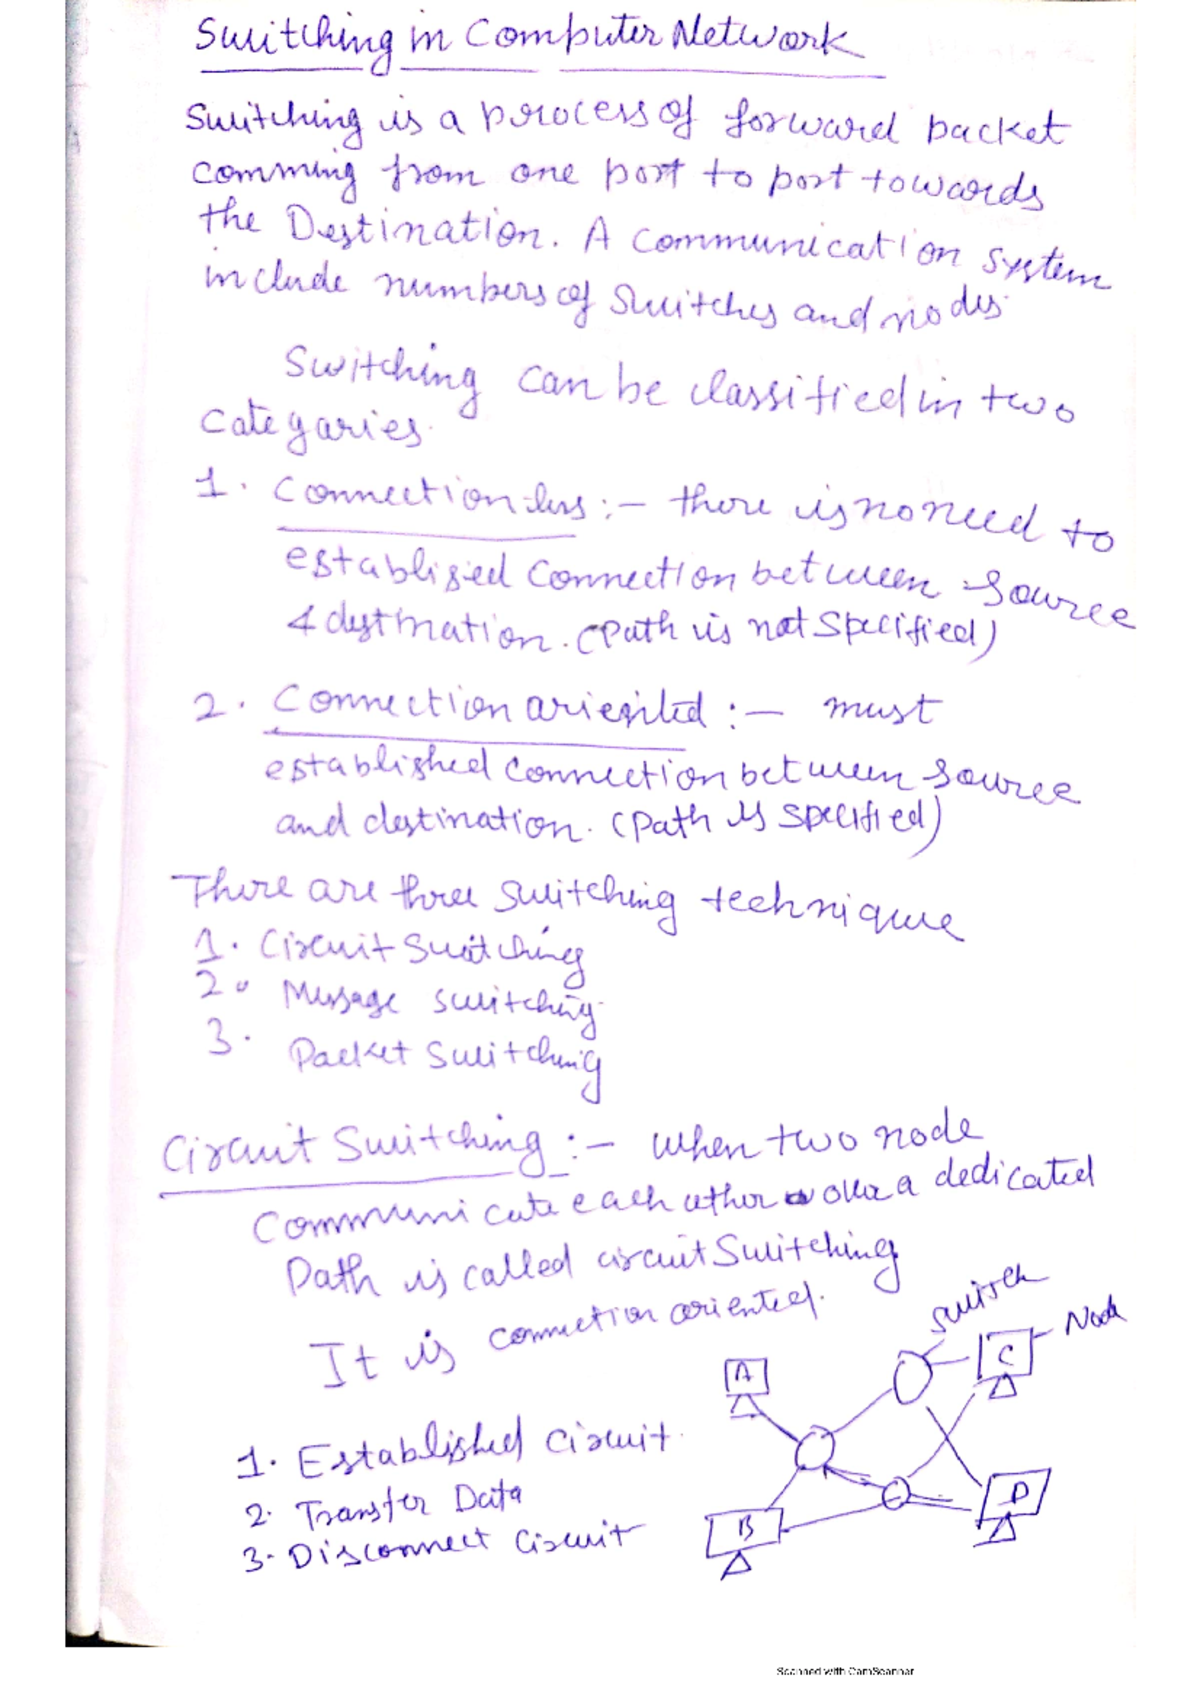 Switching in Computer Network
Switching is a process of forward packet
comming from one port to port towards
the Destination. A communication system
include numbers of switches and nodes.
Switching can be classified in two
categaries.
1. Connectionless :- there is no need to
establised connection between source
& destination. (Path is not specified)
2. Connection ariented :- must
established connection between source
and destination. (path is specified)
There are three switching technique
1. Circuit Switching
2. Message switching
3. Packet Switching
Circuit Switching :- when two node
Communicate each other over a dedicated
Path is called circuit Switching
It is connection oriented.
switch
Node
A
C
1. Established Circuit.
2. Transfer Data
3. Disconnect Circuit
B
D
Scanned with CamScanner